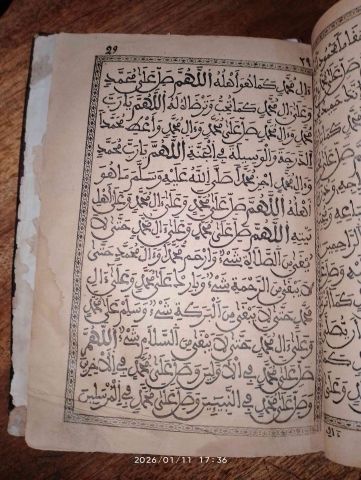 29
وءال محمد كما هو أهله اللهم صل على محمد
وعلى ءال محمد كما تحب وترضى له اللهم يا رب
محمد وءال محمد صل على محمد وءال محمد وأعط محمدا
الدرجة والوسيلة في الجنة اللهم يا رب محمد
وءال محمد اجز محمدا صلى الله عليه وسلم ما هو
أهله اللهم صل على محمد وعلى ءال محمد وعلى أهل
بيته اللهم صل على محمد وعلى ءال محمد حتى لا
يبقى من الصلاة شيء وارحم محمدا وءال محمد حتى
لا يبقى من الرحمة شيء وبارك على محمد وعلى ءال
محمد حتى لا يبقى من البركة شيء وسلم على محمد
وعلى ءال محمد حتى لا يبقى من السلام شيء اللهم
صل على محمد في الأولين وصل على محمد في الآخرين
وصل على محمد في النبيين وصل على محمد في المرسلين
2026/01/11 17:36